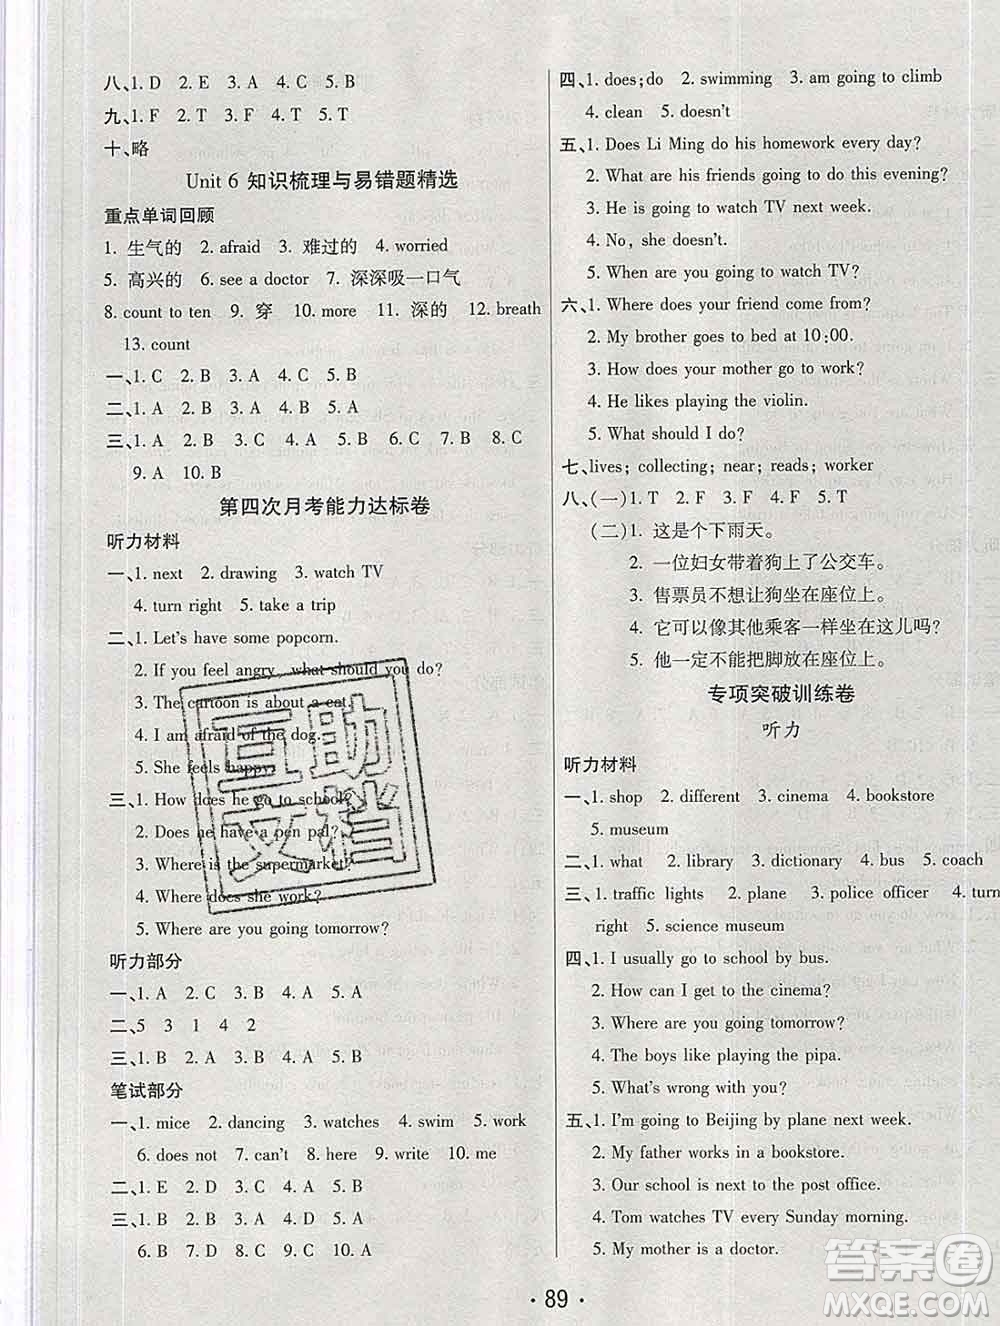 八、1. D 2. E 3. A 4. C 5. B
九、1. F 2. T 3. F 4. T 5. T
十、略
Unit 6 知识梳理与易错题精选
重点单词回顾
1. 生气的 2. afraid 3. 难过的 4. worried
5. 高兴的 6. see a doctor 7. 深深吸一口气
8. count to ten 9. 穿 10. more 11. 深的 12. breath
13. count
一、1. C 2. B 3. A 4. B 5. C
二、1. A 2. B 3. A 4. B 5. A
三、1. A 2. B 3. C 4. A 5. C 6. C 7. B 8. C
9. A 10. B
第四次月考能力达标卷
听力材料
一、1. next 2. drawing 3. watch TV
4. turn right 5. take a trip
二、1. Let's have some popcorn.
2. If you feel angry, what should you do?
3. The cartoon is about a cat.
4. I am afraid of the dog.
5. She feels happy.
三、1. How does he go to school?
2. Does he have a pen pal?
3. Where is the supermarket?
4. Where does she work?
5. Where are you going tomorrow?
听力部分
一、1. A 2. C 3. B 4. A 5. A
二、5 3 1 4 2
三、1. B 2. A 3. B 4. A 5. B
笔试部分
一、1. mice 2. dancing 3. watches 4. swim 5. work
6. does not 7. can't 8. history 9. work 10. me
二、1. E 2. D 3. C 4. B 5. A
三、1. B 2. A 3. C 4. A 5. B
6. B 7. A 8. D 9. C 10. A
四、1. does;do 2. swimming 3. am going to climb
4. clean 5. doesn't
五、1. Does Li Ming do his homework every day?
2. What are his friends going to do this evening?
3. He is going to watch TV next week.
4. No, she doesn't.
5. When are you going to watch TV?
六、1. Where does your friend come from?
2. My brother goes to bed at 10:00.
3. How does your mother go to work?
4. He likes playing the violin.
5. What should I do?
七、lives; collecting; near; reads; worker
八、(一)1. T 2. F 3. F 4. T 5. F
(二)1. 这是个下雨天。
2. 一位妇女带着狗上了公交车。
3. 售票员不想让狗坐在座位上。
4. 它可以像其他乘客一样坐在这儿吗?
5. 他一定不能把脚放在座位上。
专项突破训练卷
听力
听力材料
一、1. shop 2. different 3. cinema 4. bookstore
5. museum
二、1. what 2. library 3. dictionary 4. bus 5. coach
三、1. traffic lights 2. plane 3. police officer 4. turn
right 5. science museum
四、1. I usually go to school by bus.
2. How can I get to the cinema?
3. Where are you going tomorrow?
4. The boys like playing the pipa.
5. What's wrong with you?
五、1. I'm going to Beijing by plane next week.
2. My father works in a bookstore.
3. Our school is next to the post office.
4. Tom watches TV every Sunday morning.
5. My mother is a doctor.
· 89 ·
互助
文档
答案圈
MXQE.COM